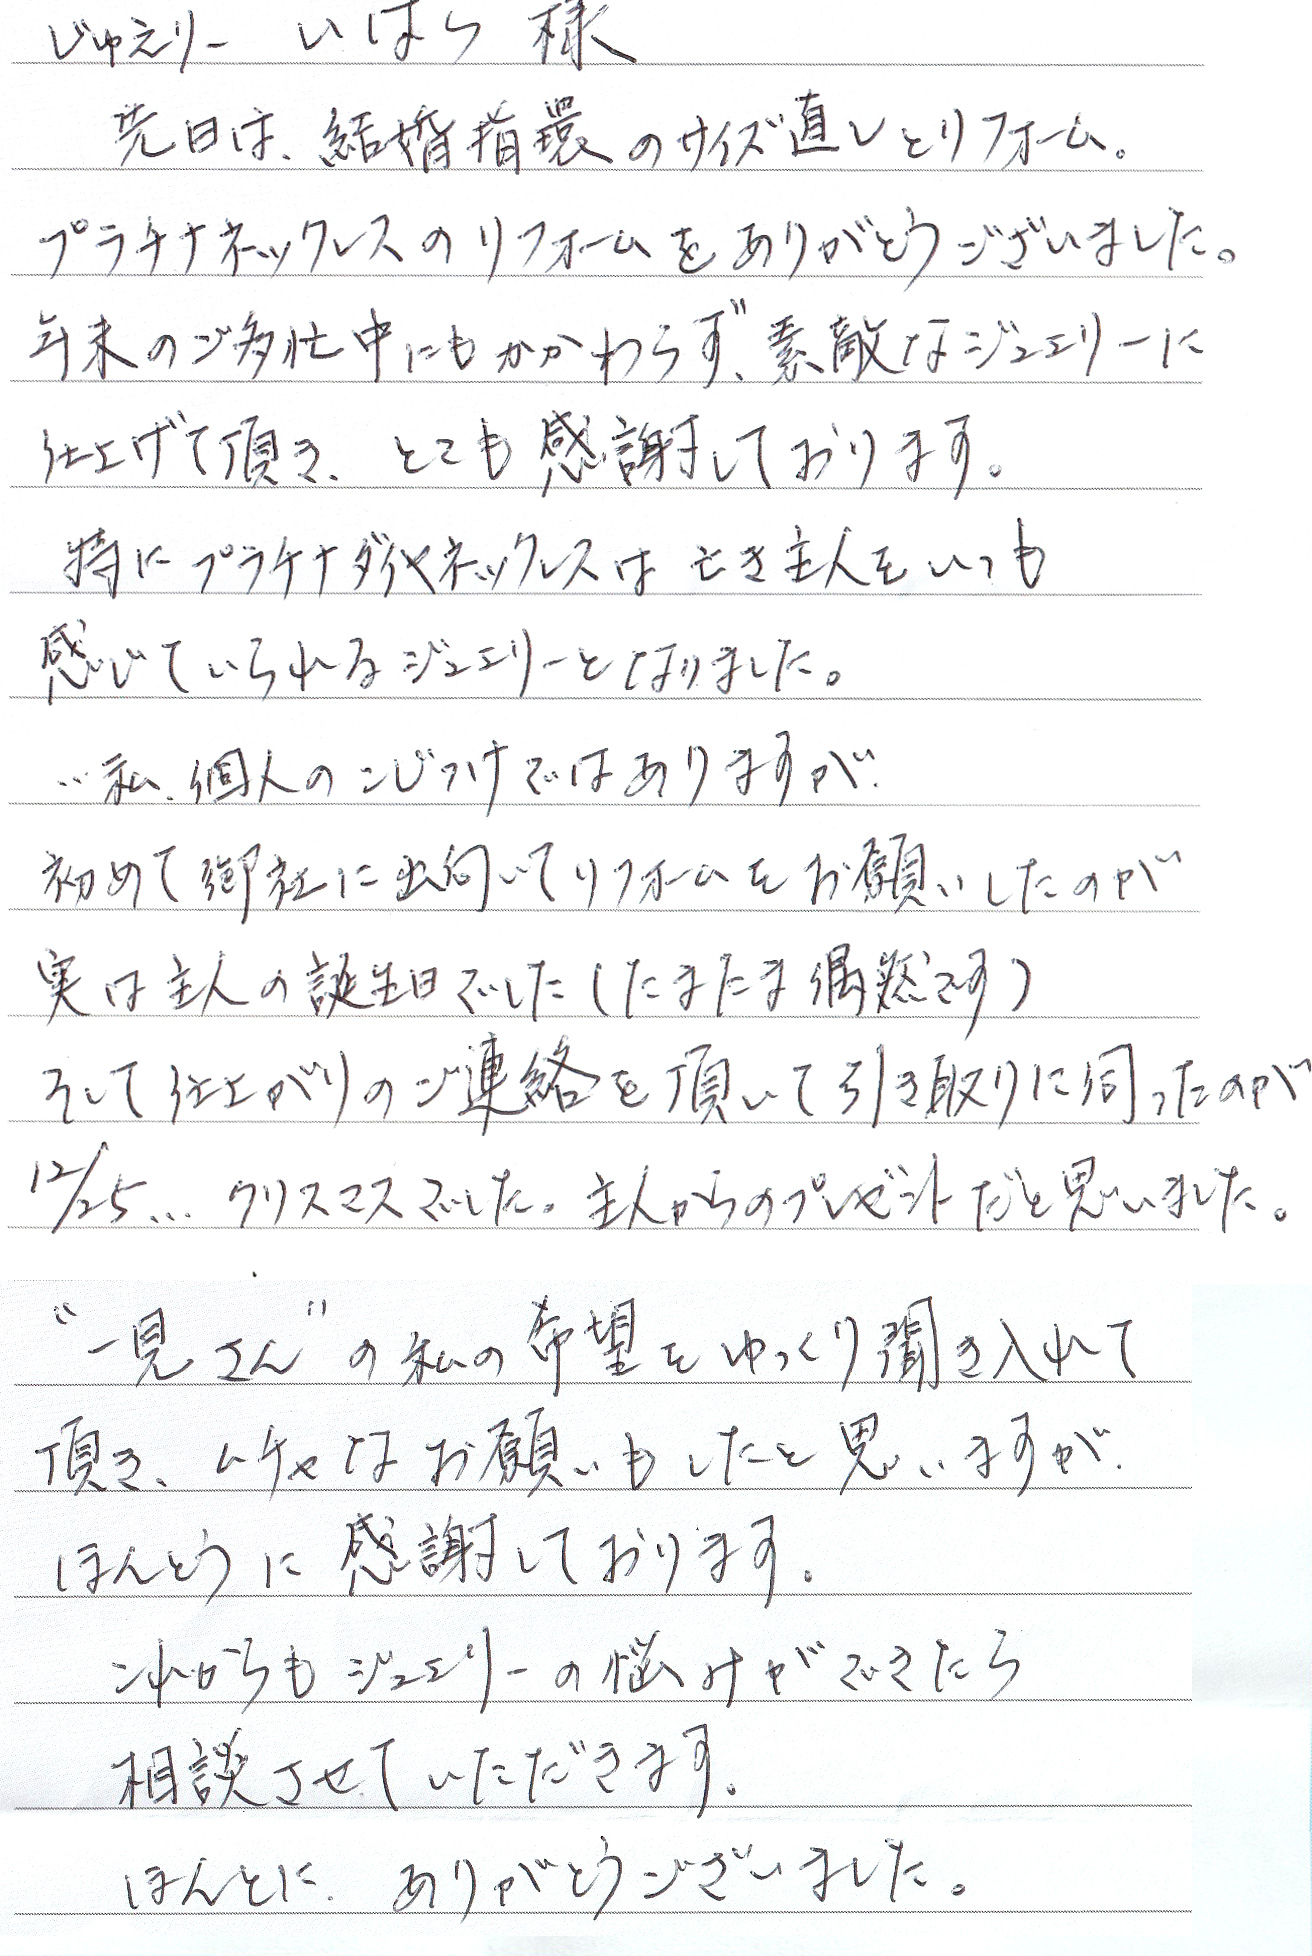 じゅえりー いはら 様
先日は、結婚指環のサイズ直しとリフォーム。
プラチナネックレスのリフォームをありがとうございました。
年末のご多忙中にもかかわらず、素敵なジュエリーに
仕上げて頂き、とても感謝しております。
特にプラチナダイヤネックレスは亡き主人をいつも
感じていられるジュエリーとなりました。
…私、個人のこじつけではありますが、
初めて御社に出向いてリフォームをお願いしたのが
実は主人の誕生日でした(たまたま偶然です)
そして仕上がりのご連絡を頂いて引き取りに伺ったのが
12/25… クリスマスでした。主人からのプレゼントだと思いました。
“一見さん”の私の希望をゆっくり聞き入れて
頂き、ムチャなお願いもしたと思いますが、
ほんとうに感謝しております。
これからもジュエリーの悩みができたら
相談させていただきます。
ほんとに、ありがとうございました。